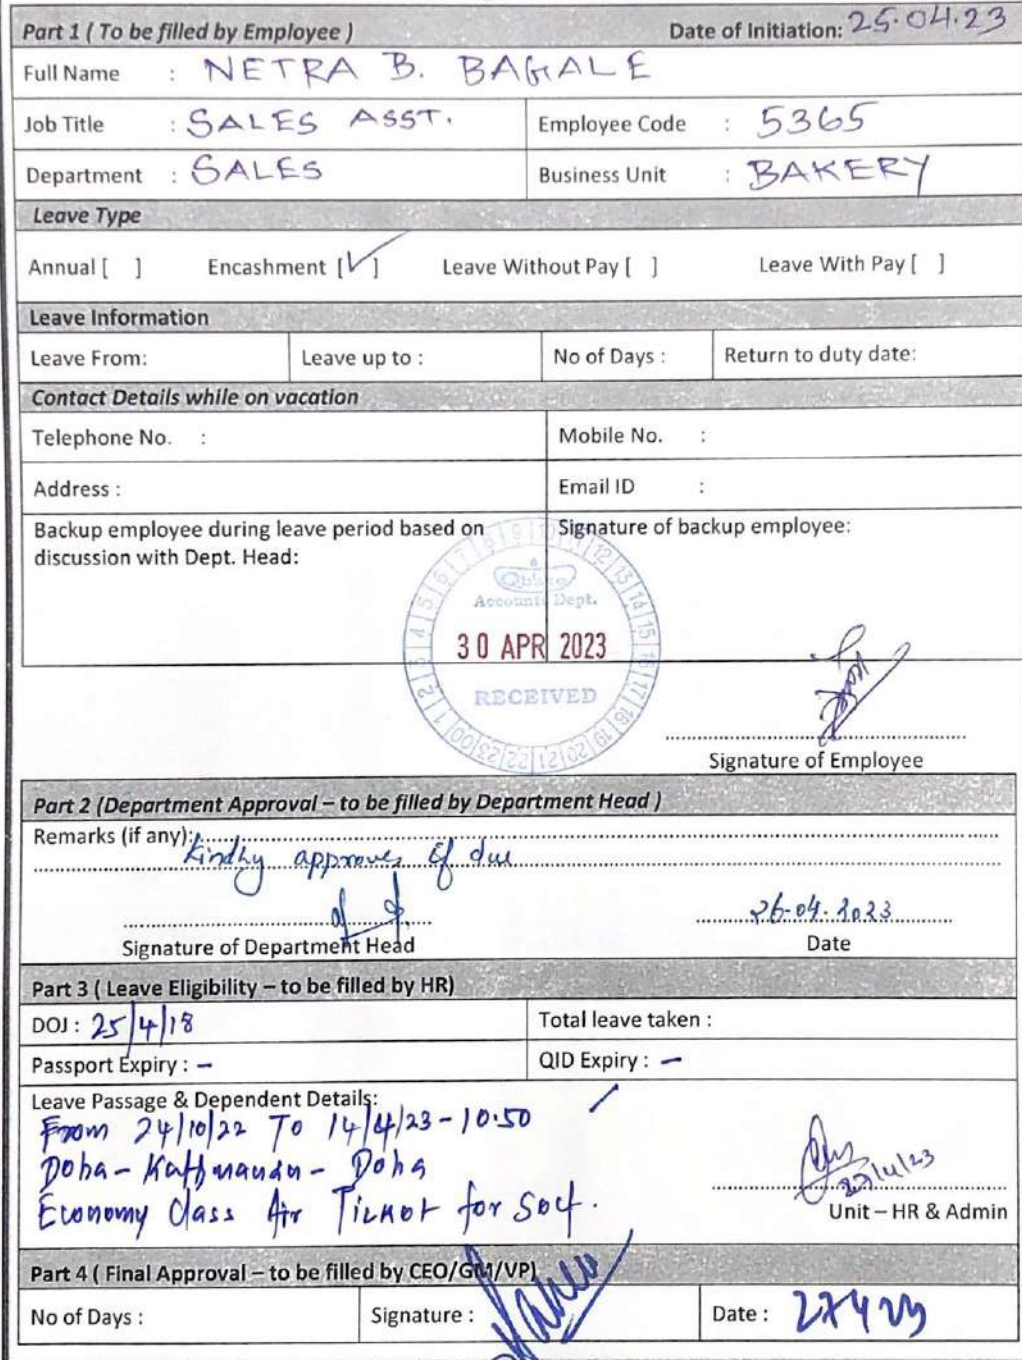 Part 1 ( To be filled by Employee ) Date of Initiation: 25.04.23
Full Name : NETRA B. BAGALE
Job Title : SALES ASST. Employee Code : 5365
Department : SALES Business Unit : BAKERY
Leave Type
Annual [ ] Encashment [✓] Leave Without Pay [ ] Leave With Pay [ ]
Leave Information
Leave From: Leave up to : No of Days : Return to duty date:
Contact Details while on vacation
Telephone No. : Mobile No. :
Address : Email ID :
Backup employee during leave period based on discussion with Dept. Head: Signature of backup employee:
Accounts Dept.
30 APR 2023
RECEIVED
Signature of Employee
Part 2 (Department Approval – to be filled by Department Head )
Remarks (if any):
Kindly approves if due
26-04-2023
Signature of Department Head Date
Part 3 ( Leave Eligibility – to be filled by HR)
DOJ : 25/4/18 Total leave taken :
Passport Expiry : – QID Expiry : –
Leave Passage & Dependent Details:
From 24/10/22 To 14/4/23 - 10.50
Doha - Kathmandu - Doha
Economy Class Air Ticket for
27/4/23
Unit – HR & Admin
Part 4 ( Final Approval – to be filled by CEO/GM/VP)
No of Days : Signature : Date : 27423